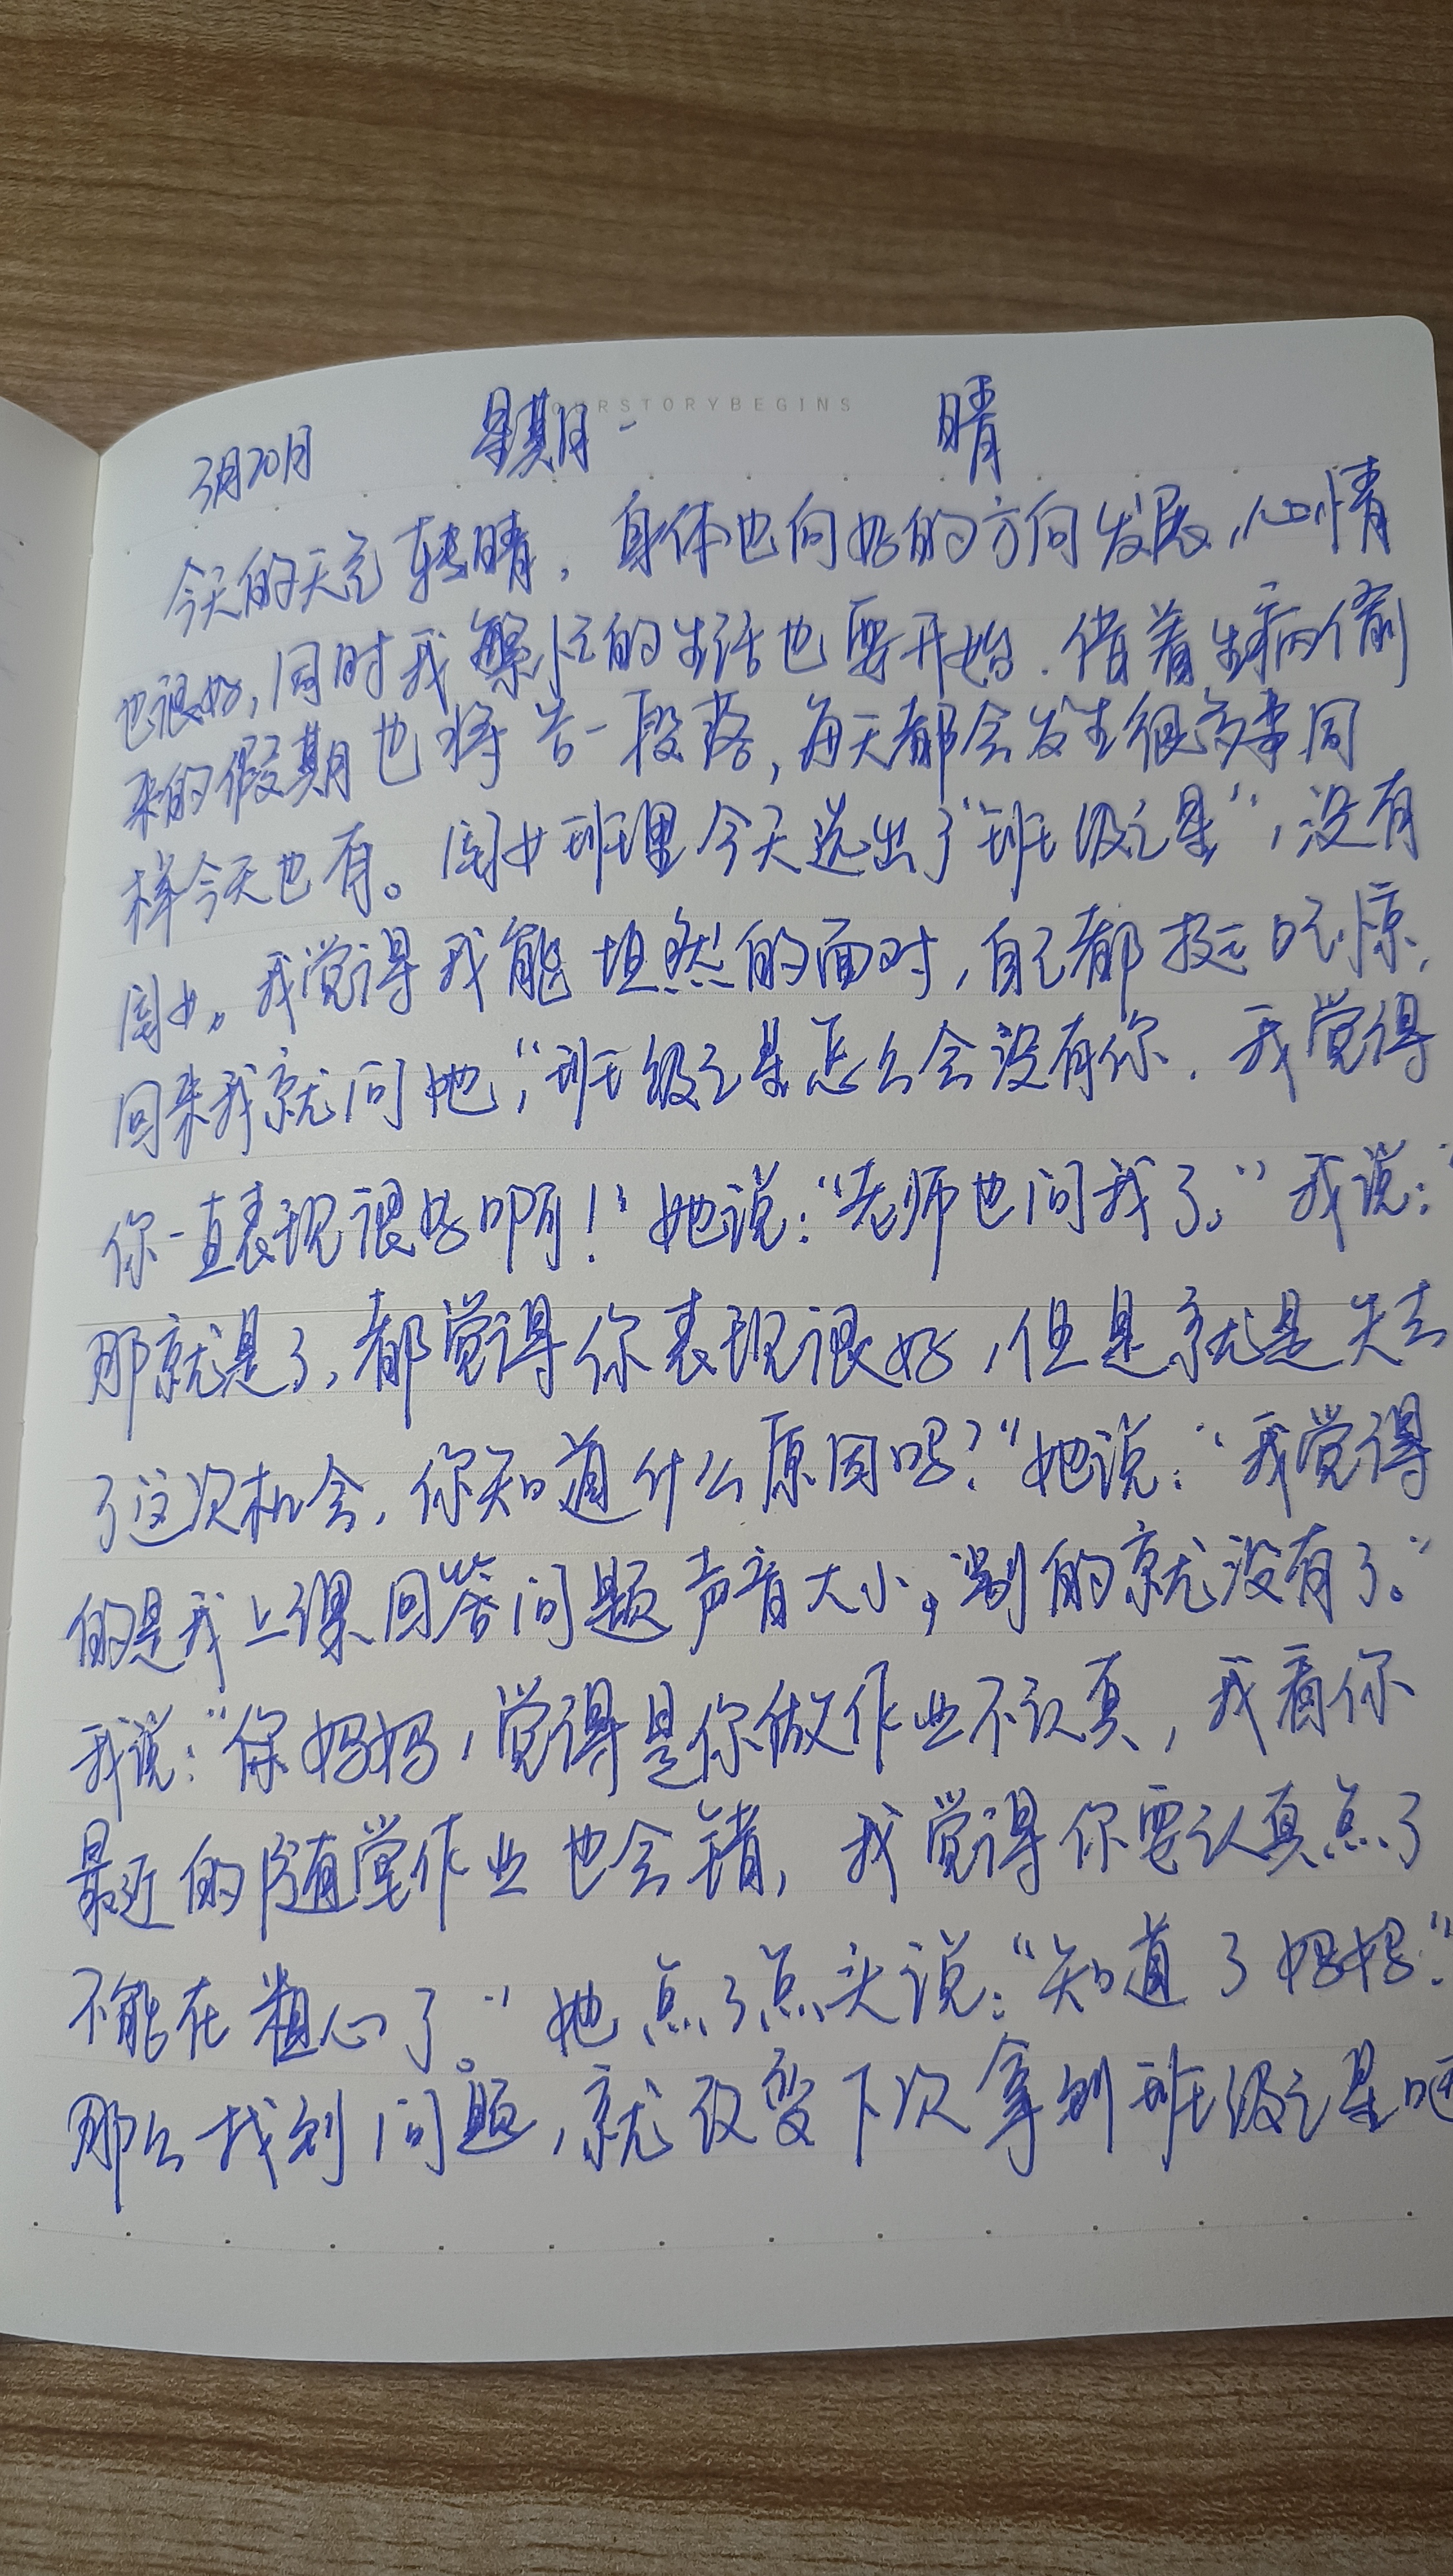 OURSTORYBEGINS
3月20日 星期一 晴
今天的天气转晴，身体也向好的方向发展，心情
也很好，同时我繁忙的生活也要开始．借着生病偷
来的假期也将告一段落，每天都会发生很多事同
样今天也有。闺女班里今天选出了“班级之星”，没有
闺女。我觉得我能坦然的面对，自己都挺吃惊，
回来我就问她，“班级之星怎么会没有你．我觉得
你一直表现很好啊！”她说：“老师也问我了。”我说：“
那就是了，都觉得你表现很好，但是就是失去
了这次机会，你知道什么原因吗？”她说：“我觉得
的是我上课回答问题声音太小，别的就没有了。”
我说：“你妈妈，觉得是你做作业不认真，我看你
最近的随堂作业也会错，我觉得你要认真点了
不能在粗心了。”她点了点头说：“知道了妈妈．”
那么找到问题，就改变下次拿到班级之星吧